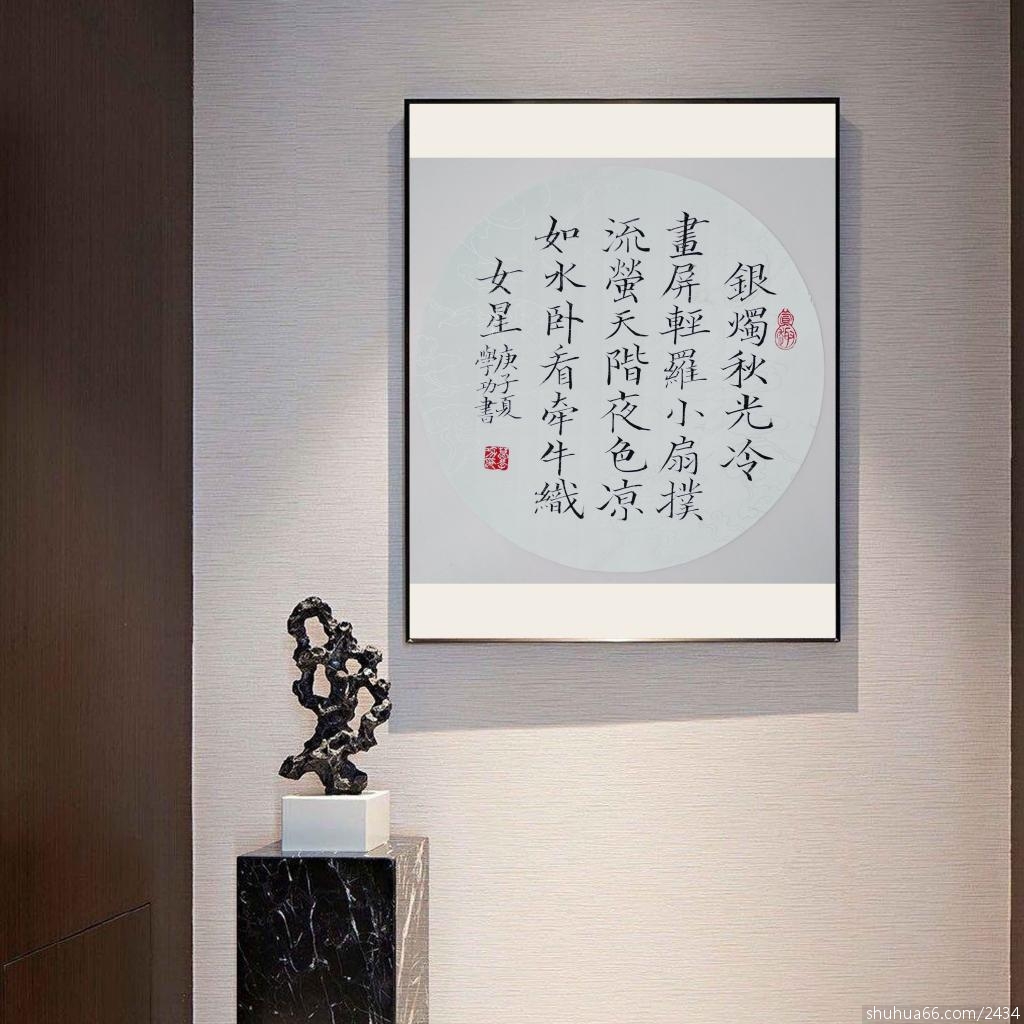 銀燭秋光冷
畫屏輕羅小扇撲
流螢天階夜色凉
如水卧看牽牛織
女星
庚子夏
學功書
shuhua66.com/2434